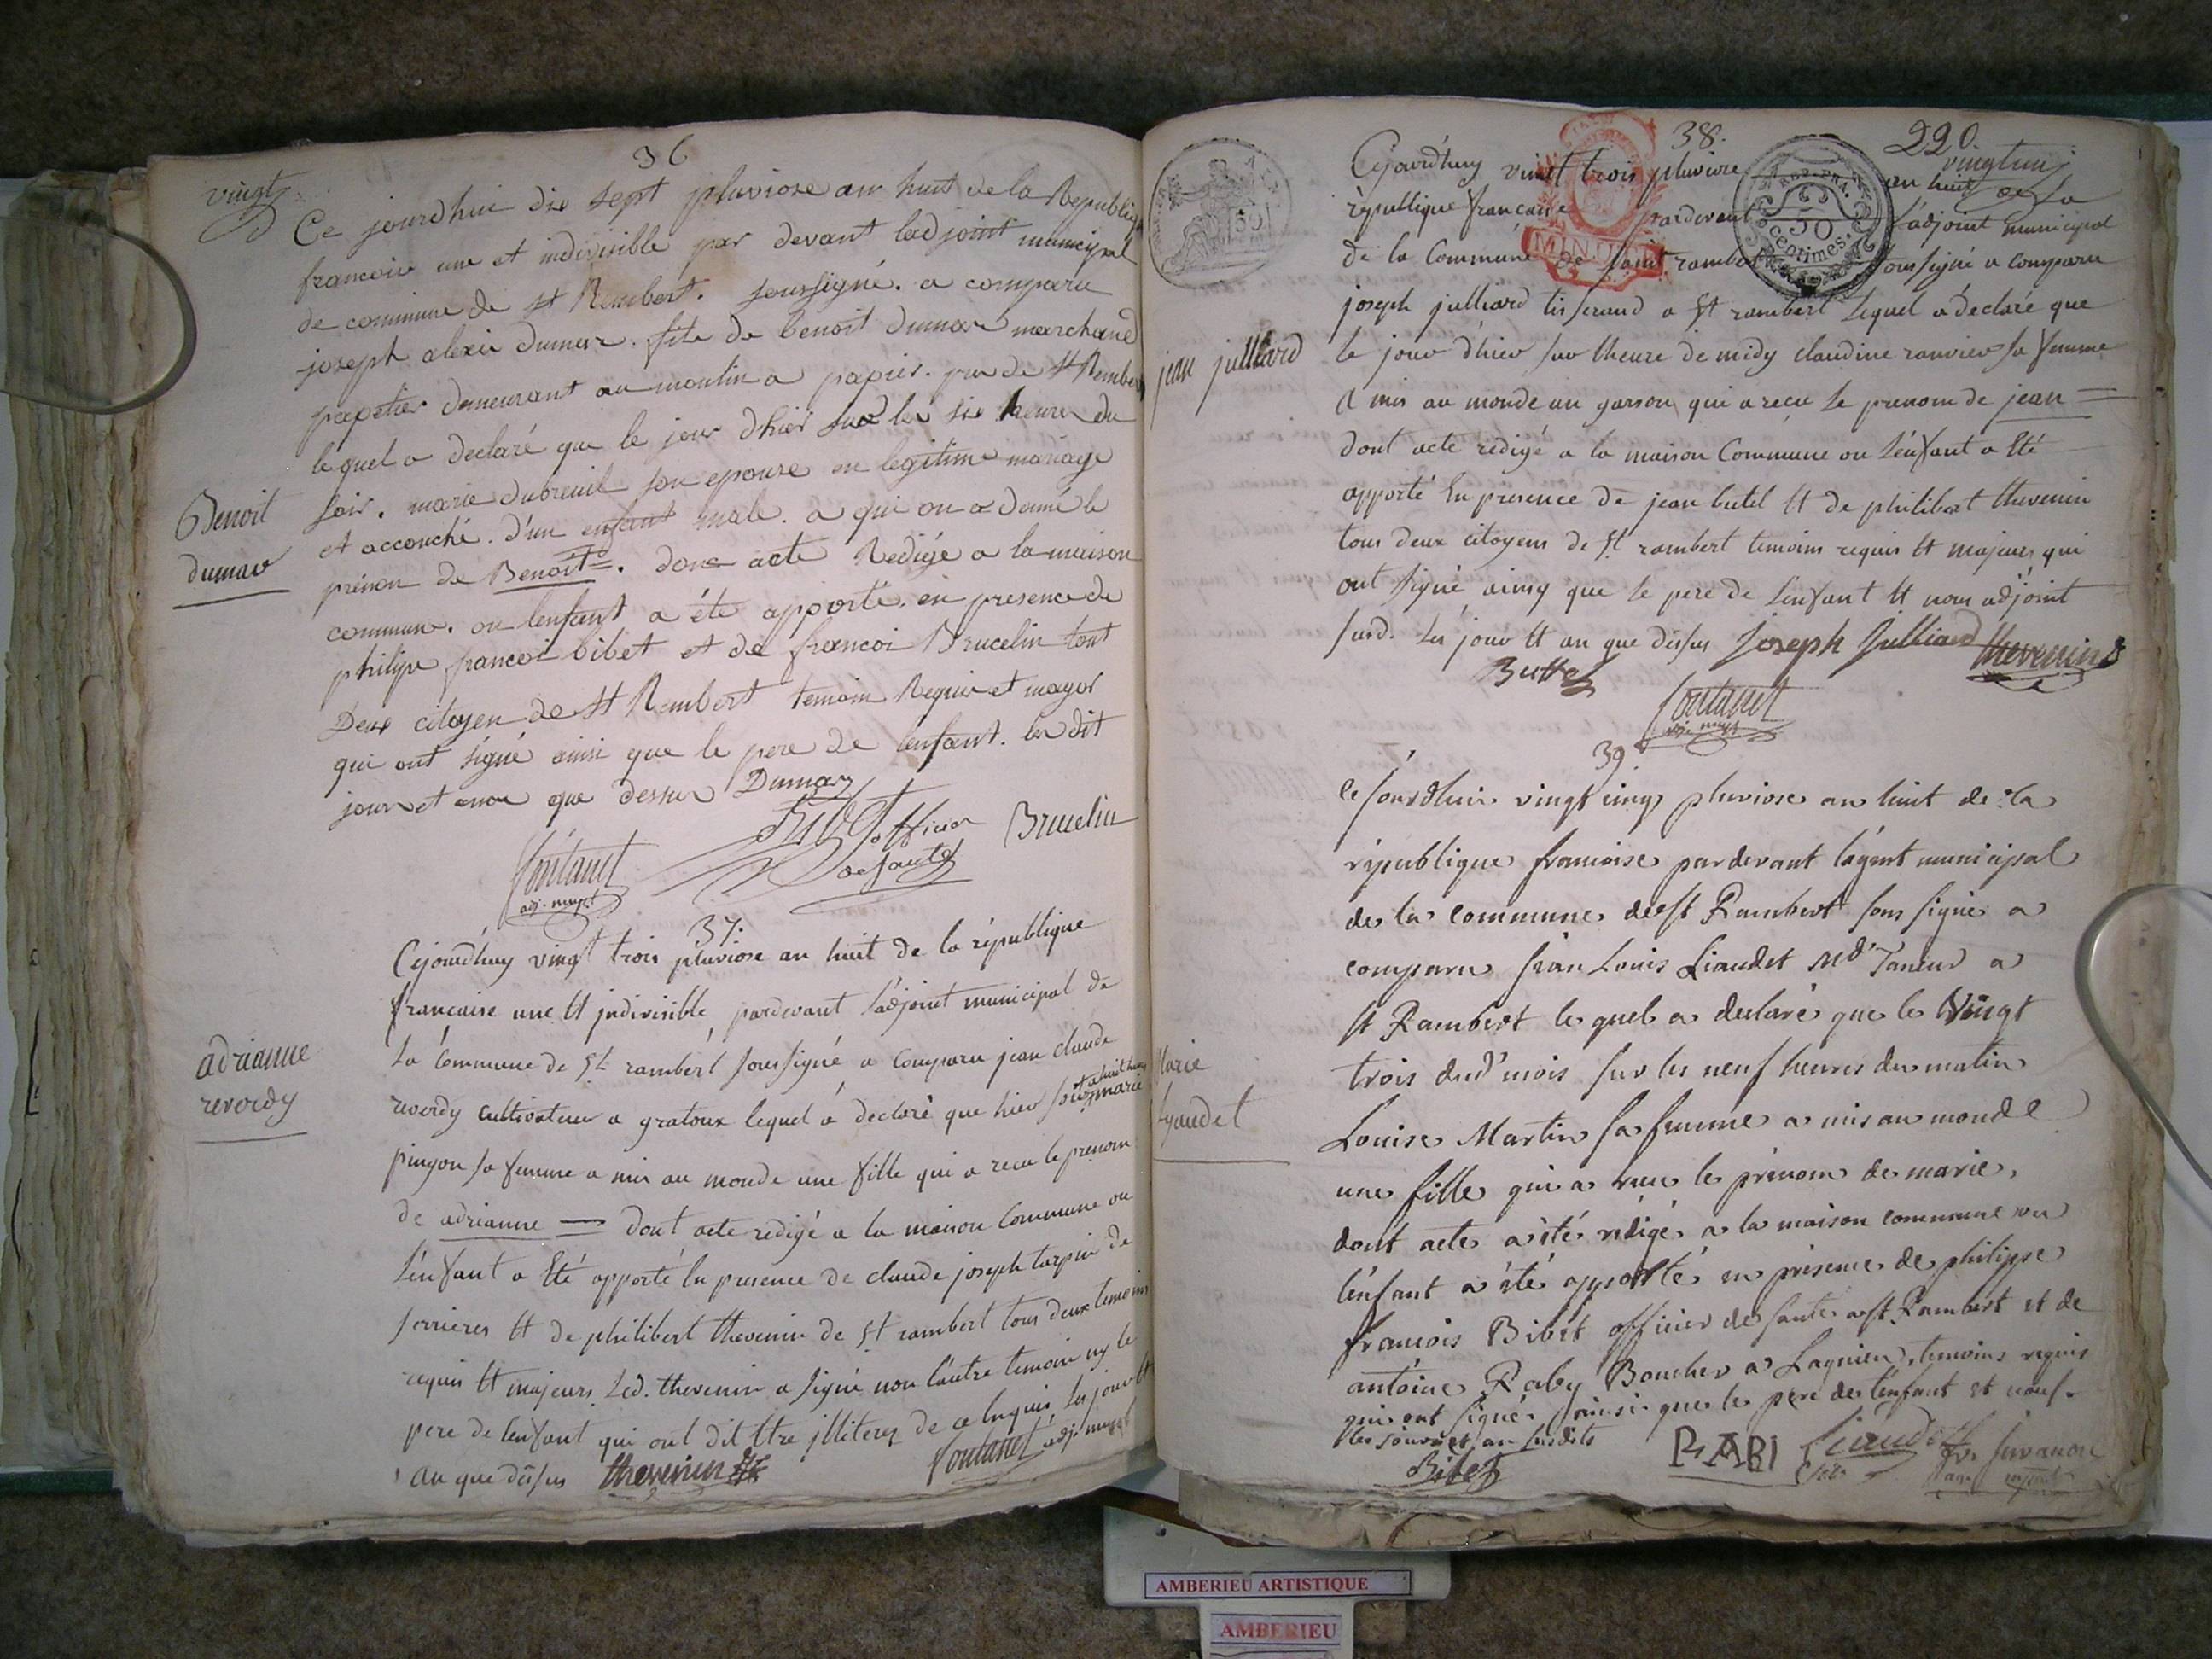 36
vingt
Ce jourdhui dix sept pluviose an huit de la Republiq
francoise une et indivisible par devant ladjoint municipal
de commune de St Rembert. soussigné. a comparu
joseph alexis dumas. fils de benoit dumas marchand
papetier demeurant au moulin a papier. pres de St Rember
lequel a declaré que le jour dhier sur les six heures du
soir. marie dubreuil son epouse en legitime mariage
et accouché. d'un enfant male. a qui on a donné le
prénon de Benoit =. donc acte Redigé a la maison
commune. ou lenfant a été apporté. en presence de
philipe francoi bibet et de francoi Brucelin tout
Deux citoyen de St Rembert temoin Requis et mayor
qui ont signé ainsi que le pere de lenfant. les dit
jour et anou que dessus Dumas
Benoit
dumas
Bibet officier
de santé
Brucelin
fontanet
adj. mupl
37.
Cejourdhuy vingt trois pluviose an huit de la république
francaise une Et jndivisible pardevant l'adjoint municipal de
la Commune de St rambert soussigné a Comparu jean claude
reverdy cultivateur a gratoux lequel a declaré que hier marie
pingon sa femme a mis au monde une fille qui a recu le prenom
de adrianne = dont acte redigé a la maison Commune ou
l'enfant a Eté apporté En presence de claude joseph tarpin de
serrieres Et de philibert thevenin de St rambert tous deux temoins
requis Et majeurs. Led. thevenin a signé non l'autre temoin ny le
pere de lenfant qui ont dit Etre jlliterez de ce Enquis les jour Et
an que dessus thevenin fontanet adj. mupal
adrianne
reverdy
38.
220.
vingtun
Cejourdhuy vingt trois pluviose an huit de la
république francaise pardevant l'adjoint municipal
de la Commune de saint rambert soussigné a Comparu
joseph julliard tisserand a St rambert Lequel a declaré que
le jour d'hier sur lheure de midy claudine ranvier sa femme
a mis au monde un garson qui a recu le prenom de jean =
dont acte redigé a la maison Commune ou l'enfant a Eté
apporté En presence de jean butel Et de philibert thevenin
tous deux citoyens de St rambert temoins requis Et majeurs qui
ont signé ainsy que le pere de l'enfant Et nous adjoint
susd. Les jour Et an que dessus Joseph Julliard thevenin
Buttel
fontanet
adj. mupl
jean julliard
MINUTE
50
REP. FRA.
50
centimes
39
Ce jourdhui vingt cinq pluviose an huit de la
république francoise pardevant l'agent municipal
de la commune de St Rambert sous signé a
comparu jean Louis Liaudet Md Taneur a
St Rambert le quel a declaré que le Vingt
trois dud' mois sur les neuf heures du matin
Louise Martin sa femme a mis au monde
une fille qui a recu le prénom de marie,
dont acte a été rédigé a la maison commune ou
l'enfant a été apporté en présence de philippe
francois Bibet officier de santé a St Rambert et de
antoine Raby Boucher a Lagnieu, temoins requis
qui ont signé ainsi que le pere de l'enfant et nous
les jour et an susdits
Marie
Lyaudet
Bibet
RABI
Liaudet
AMBERIEU ARTISTIQUE
AMBERIEU